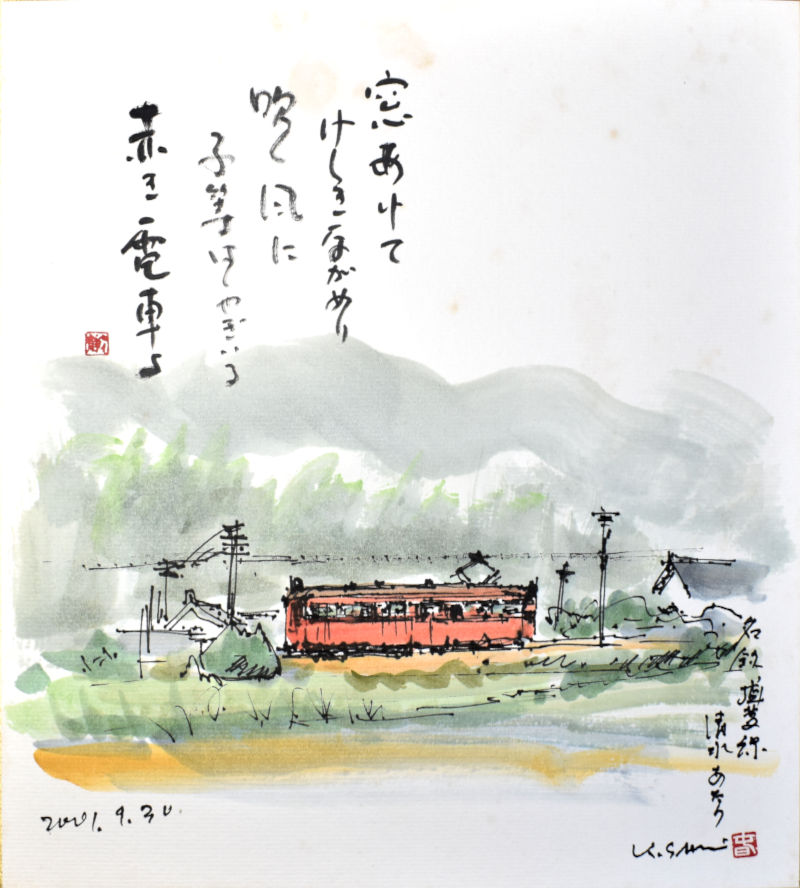 窓あけて
けしきながめり
吹く風に
子等はしやぎいる
赤き電車よ
名鉄揖斐線
清水あたり
2001.9.30.